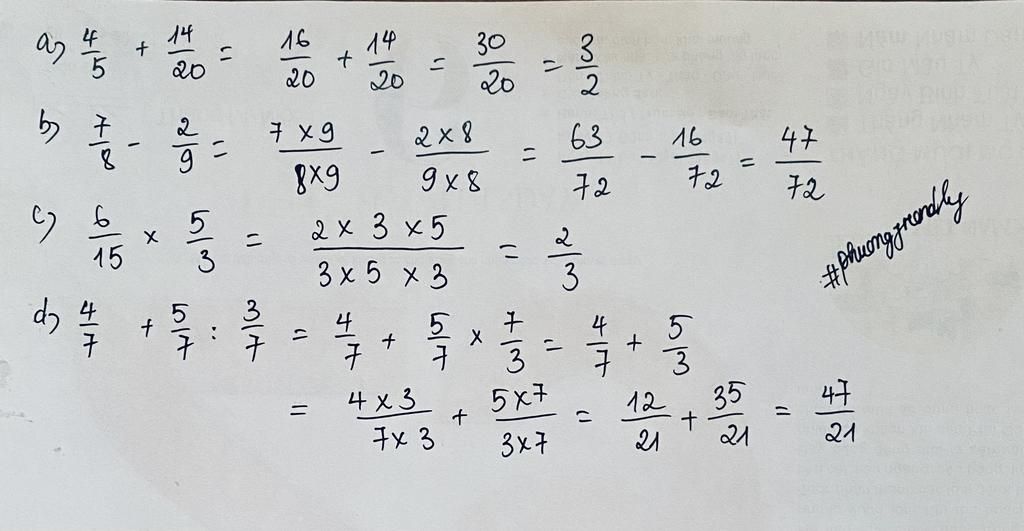 a) 4/5 + 14/20 = 16/20 + 14/20 = 30/20 = 3/2
b) 7/8 - 2/9 = 7 x 9/8 x 9 - 2 x 8/9 x 8 = 63/72 - 16/72 = 47/72
c) 6/15 x 5/3 = 2 x 3 x 5/3 x 5 x 3 = 2/3
#phuongfreondly
d) 4/7 + 5/7 : 3/7 = 4/7 + 5/7 x 7/3 = 4/7 + 5/3
= 4 x 3/7 x 3 + 5 x 7/3 x 7 = 12/21 + 35/21 = 47/21